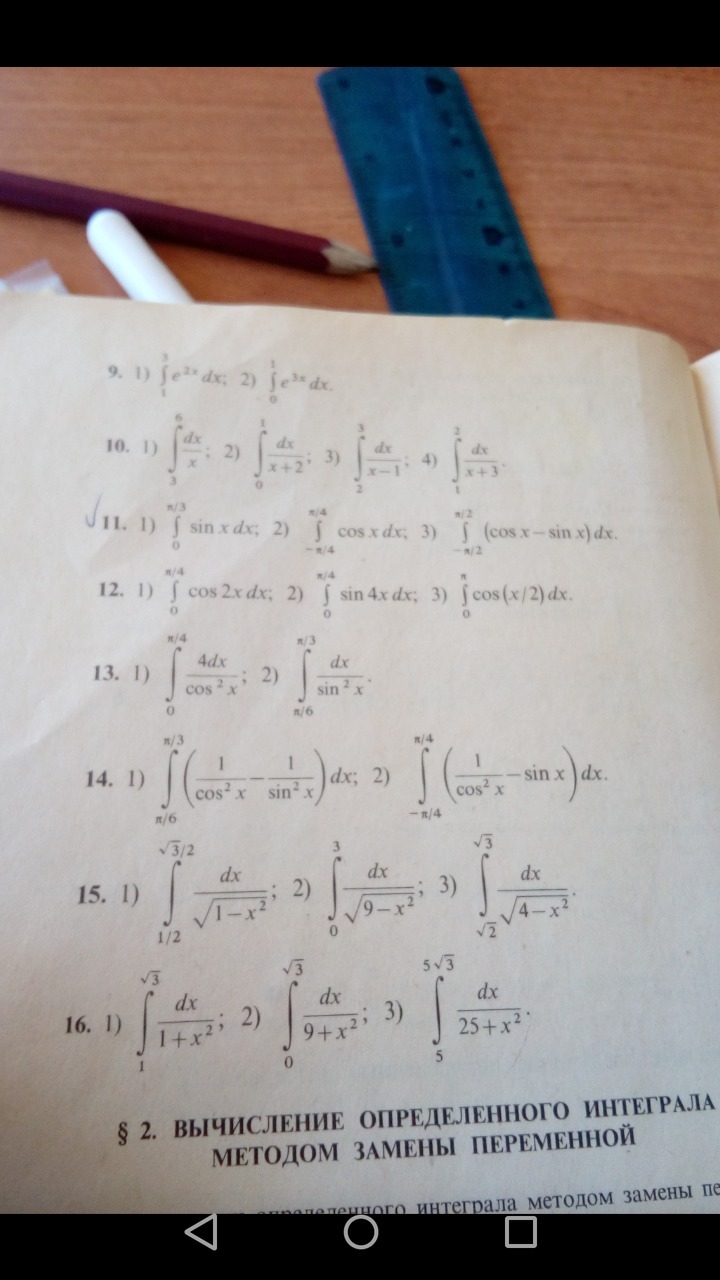 9. 1) ∫₁³ e²ˣ dx; 2) ∫₀¹ e³ˣ dx.
10. 1) ∫₃⁶ dx/x; 2) ∫₀¹ dx/(x+2); 3) ∫₂³ dx/(x−1); 4) ∫₁² dx/(x+3).
11. 1) ∫₀^(π/3) sin x dx; 2) ∫_(−π/4)^(π/4) cos x dx; 3) ∫_(−π/2)^(π/2) (cos x − sin x) dx.
12. 1) ∫₀^(π/4) cos 2x dx; 2) ∫₀^(π/4) sin 4x dx; 3) ∫₀^π cos (x/2) dx.
13. 1) ∫₀^(π/4) 4dx/cos² x; 2) ∫_(π/6)^(π/3) dx/sin² x.
14. 1) ∫_(π/6)^(π/3) (1/cos² x − 1/sin² x) dx; 2) ∫_(−π/4)^(π/4) (1/cos² x − sin x) dx.
15. 1) ∫_(1/2)^(√3/2) dx/√(1−x²); 2) ∫₀³ dx/√(9−x²); 3) ∫_(√2)^(√3) dx/√(4−x²).
16. 1) ∫₁^(√3) dx/(1+x²); 2) ∫₀^(√3) dx/(9+x²); 3) ∫₅^(5√3) dx/(25+x²).
§ 2. ВЫЧИСЛЕНИЕ ОПРЕДЕЛЕННОГО ИНТЕГРАЛА
МЕТОДОМ ЗАМЕНЫ ПЕРЕМЕННОЙ
определенного интеграла методом замены пе